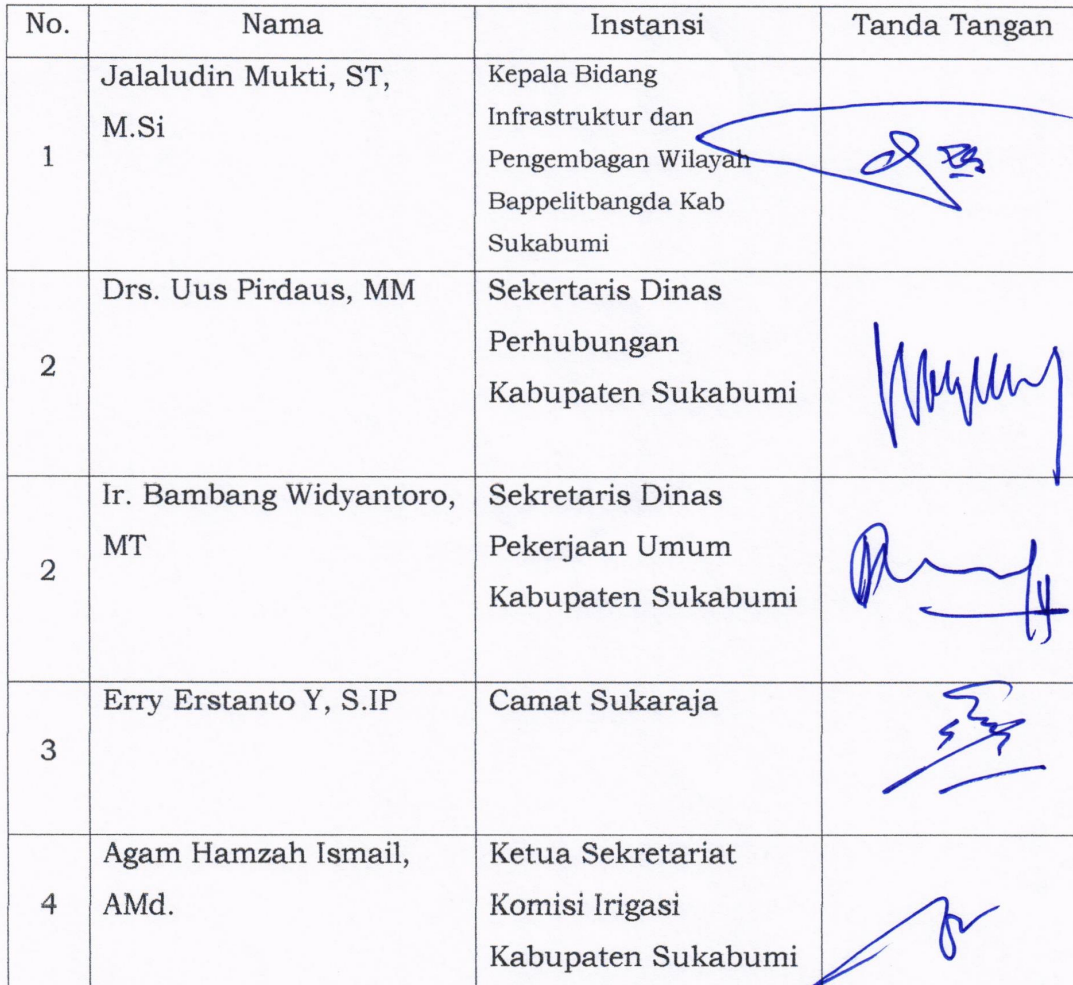 No. Nama Instansi Tanda Tangan
1 Jalaludin Mukti, ST, M.Si Kepala Bidang
Infrastruktur dan
Pengembagan Wilayah
Bappelitbangda Kab
Sukabumi
2 Drs. Uus Pirdaus, MM Sekertaris Dinas
Perhubungan
Kabupaten Sukabumi
2 Ir. Bambang Widyantoro, MT Sekretaris Dinas
Pekerjaan Umum
Kabupaten Sukabumi
3 Erry Erstanto Y, S.IP Camat Sukaraja
4 Agam Hamzah Ismail, AMd. Ketua Sekretariat
Komisi Irigasi
Kabupaten Sukabumi